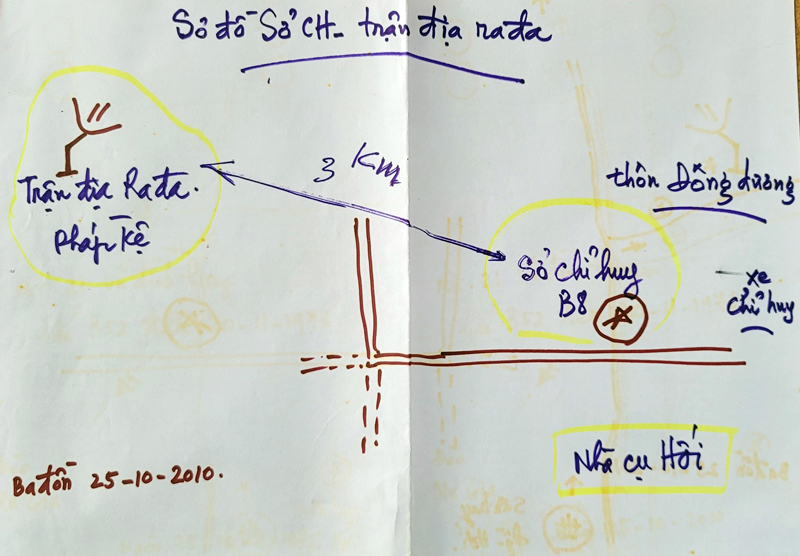 Sơ đồ Sở CH- trận địa rađa
3 Km
Trận địa Rađa.
Pháp Kệ
thôn Đông dương
Sở chỉ huy
B8
xe
chỉ huy
Nhà cụ Hối
Ba đồn 25-10-2010.